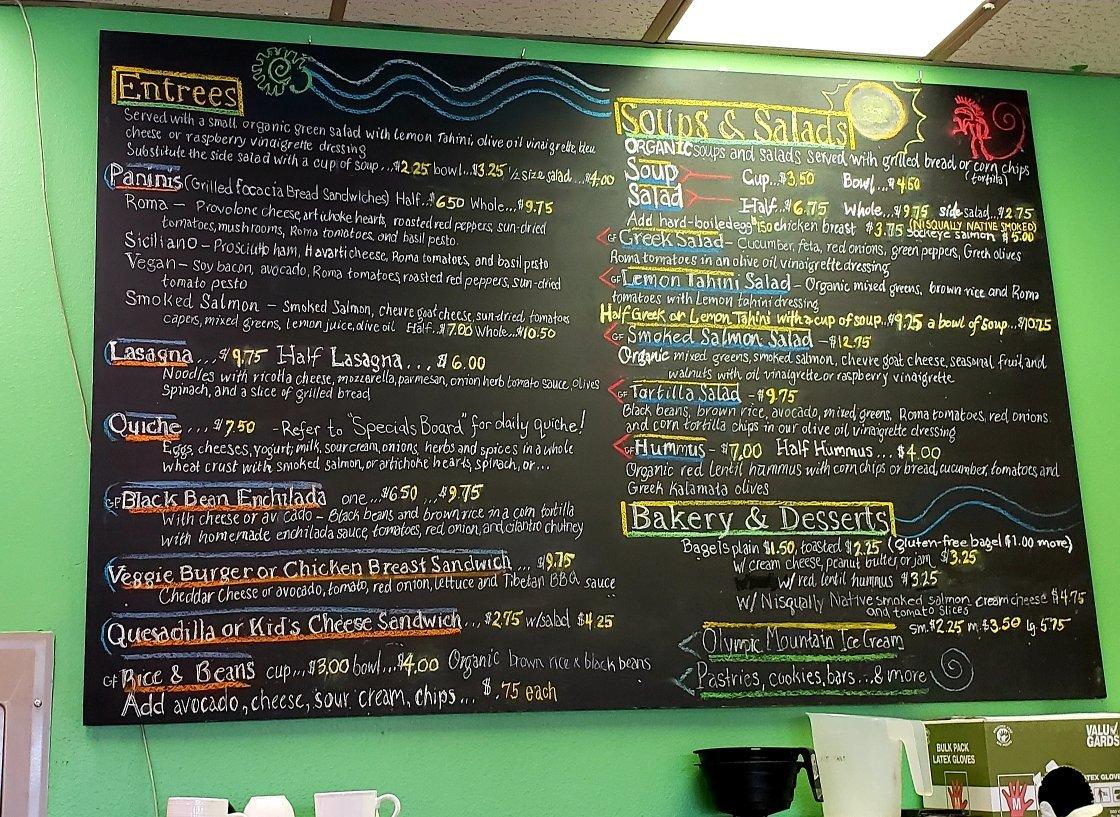 Entrees
Served with a small organic green salad with Lemon Tahini, olive oil vinaigrette, bleu
cheese or raspberry vinaigrette dressing
Substitute the side salad with a cup of soup...$2.25 bowl...$3.25 1/2 size salad...$4.00
Paninis (Grilled Focaccia Bread Sandwiches) Half...$6.50 Whole...$9.75
Roma - Provolone cheese, artichoke hearts, roasted red peppers, sun-dried
tomatoes, mushrooms, Roma tomatoes, and basil pesto.
Siciliano - Prosciutto ham, Havarti cheese, Roma tomatoes, and basil pesto
Vegan - Soy bacon, avocado, Roma tomatoes, roasted red peppers, sun-dried
tomato pesto
Smoked Salmon - Smoked Salmon, chevre goat cheese, sun-dried tomatoes
capers, mixed greens, lemon juice, olive oil Half...$7.00 Whole...$10.50
Lasagna...$9.75 Half Lasagna...$6.00
Noodles with ricotta cheese, mozzarella, parmesan, onion herb tomato sauce, olives
Spinach, and a slice of grilled bread
Quiche...$7.50 - Refer to "Specials Board" for daily quiche!
Eggs, cheeses, yogurt, milk, sour cream, onions, herbs and spices in a whole
wheat crust with smoked salmon, or artichoke hearts, spinach, or...
GF Black Bean Enchilada one...$6.50 ...$9.75
With cheese or avocado - Black beans and brown rice in a corn tortilla
with homemade enchilada sauce, tomatoes, red onion, and cilantro chutney
Veggie Burger or Chicken Breast Sandwich...$9.75
Cheddar Cheese or avocado, tomato, red onion, lettuce and Tibetan BBQ sauce
Quesadilla or Kid's Cheese Sandwich...$2.75 w/salad $4.25
GF Rice & Beans cup...$3.00 bowl...$4.00 Organic brown rice & black beans
Add avocado, cheese, sour cream, chips... $.75 each
Soups & Salads
ORGANIC soups and salads served with grilled bread or corn chips
(tortilla)
Soup Cup...$3.50 Bowl...$4.50
Salad Half...$6.75 Whole...$9.75 side salad...$2.75
Add hard-boiled egg $1.50 chicken breast $3.75 (NISQUALLY NATIVE SMOKED) Sockeye salmon $5.00
GF Greek Salad - Cucumber, feta, red onions, green peppers, Greek olives
Roma tomatoes in an olive oil vinaigrette dressing
GF Lemon Tahini Salad - Organic mixed greens, brown rice and Roma
tomatoes with Lemon tahini dressing
Half Greek or Lemon Tahini with a cup of soup...$9.25 a bowl of soup...$10.25
GF Smoked Salmon Salad - $12.75
Organic mixed greens, smoked salmon, chevre goat cheese, seasonal fruit, and
walnuts with oil vinaigrette or raspberry vinaigrette
GF Tortilla Salad - $9.75
Black beans, brown rice, avocado, mixed greens, Roma tomatoes, red onions.
and corn tortilla chips in our olive oil vinaigrette dressing
GF Hummus - $7.00 Half Hummus...$4.00
Organic red lentil hummus with corn chips or bread, cucumber, tomatoes, and
Greek Kalamata olives
Bakery & Desserts
Bagels plain $1.50, toasted $2.25 (gluten-free bagel $1.00 more)
w/ cream cheese, peanut butter, or jam $3.25
w/ red lentil hummus $3.25
w/ Nisqually Native smoked salmon cream cheese $4.75
and tomato slices
Olympic Mountain Ice Cream sm.$2.25 m.$3.50 lg.5.75
Pastries, cookies, bars...& more
BULK PACK
LATEX GLOVES
VALU
GARDS
LATEX GLOVES
M